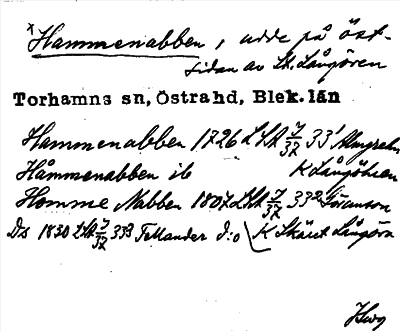 *Hammenabben, udde på öst-
sidan av St. Långören
Torhamns sn, Östra hd, Blek. län
Hammenabben 1726 LSA 7/32 33¹ Almgren
Håmmenabben ib K Långöhren
Homme Nabben 1807 LSA 7/32 33² Göranson
Ds 1830 LSA 7/32 33³ Fellander d:o K Skäret Långörn